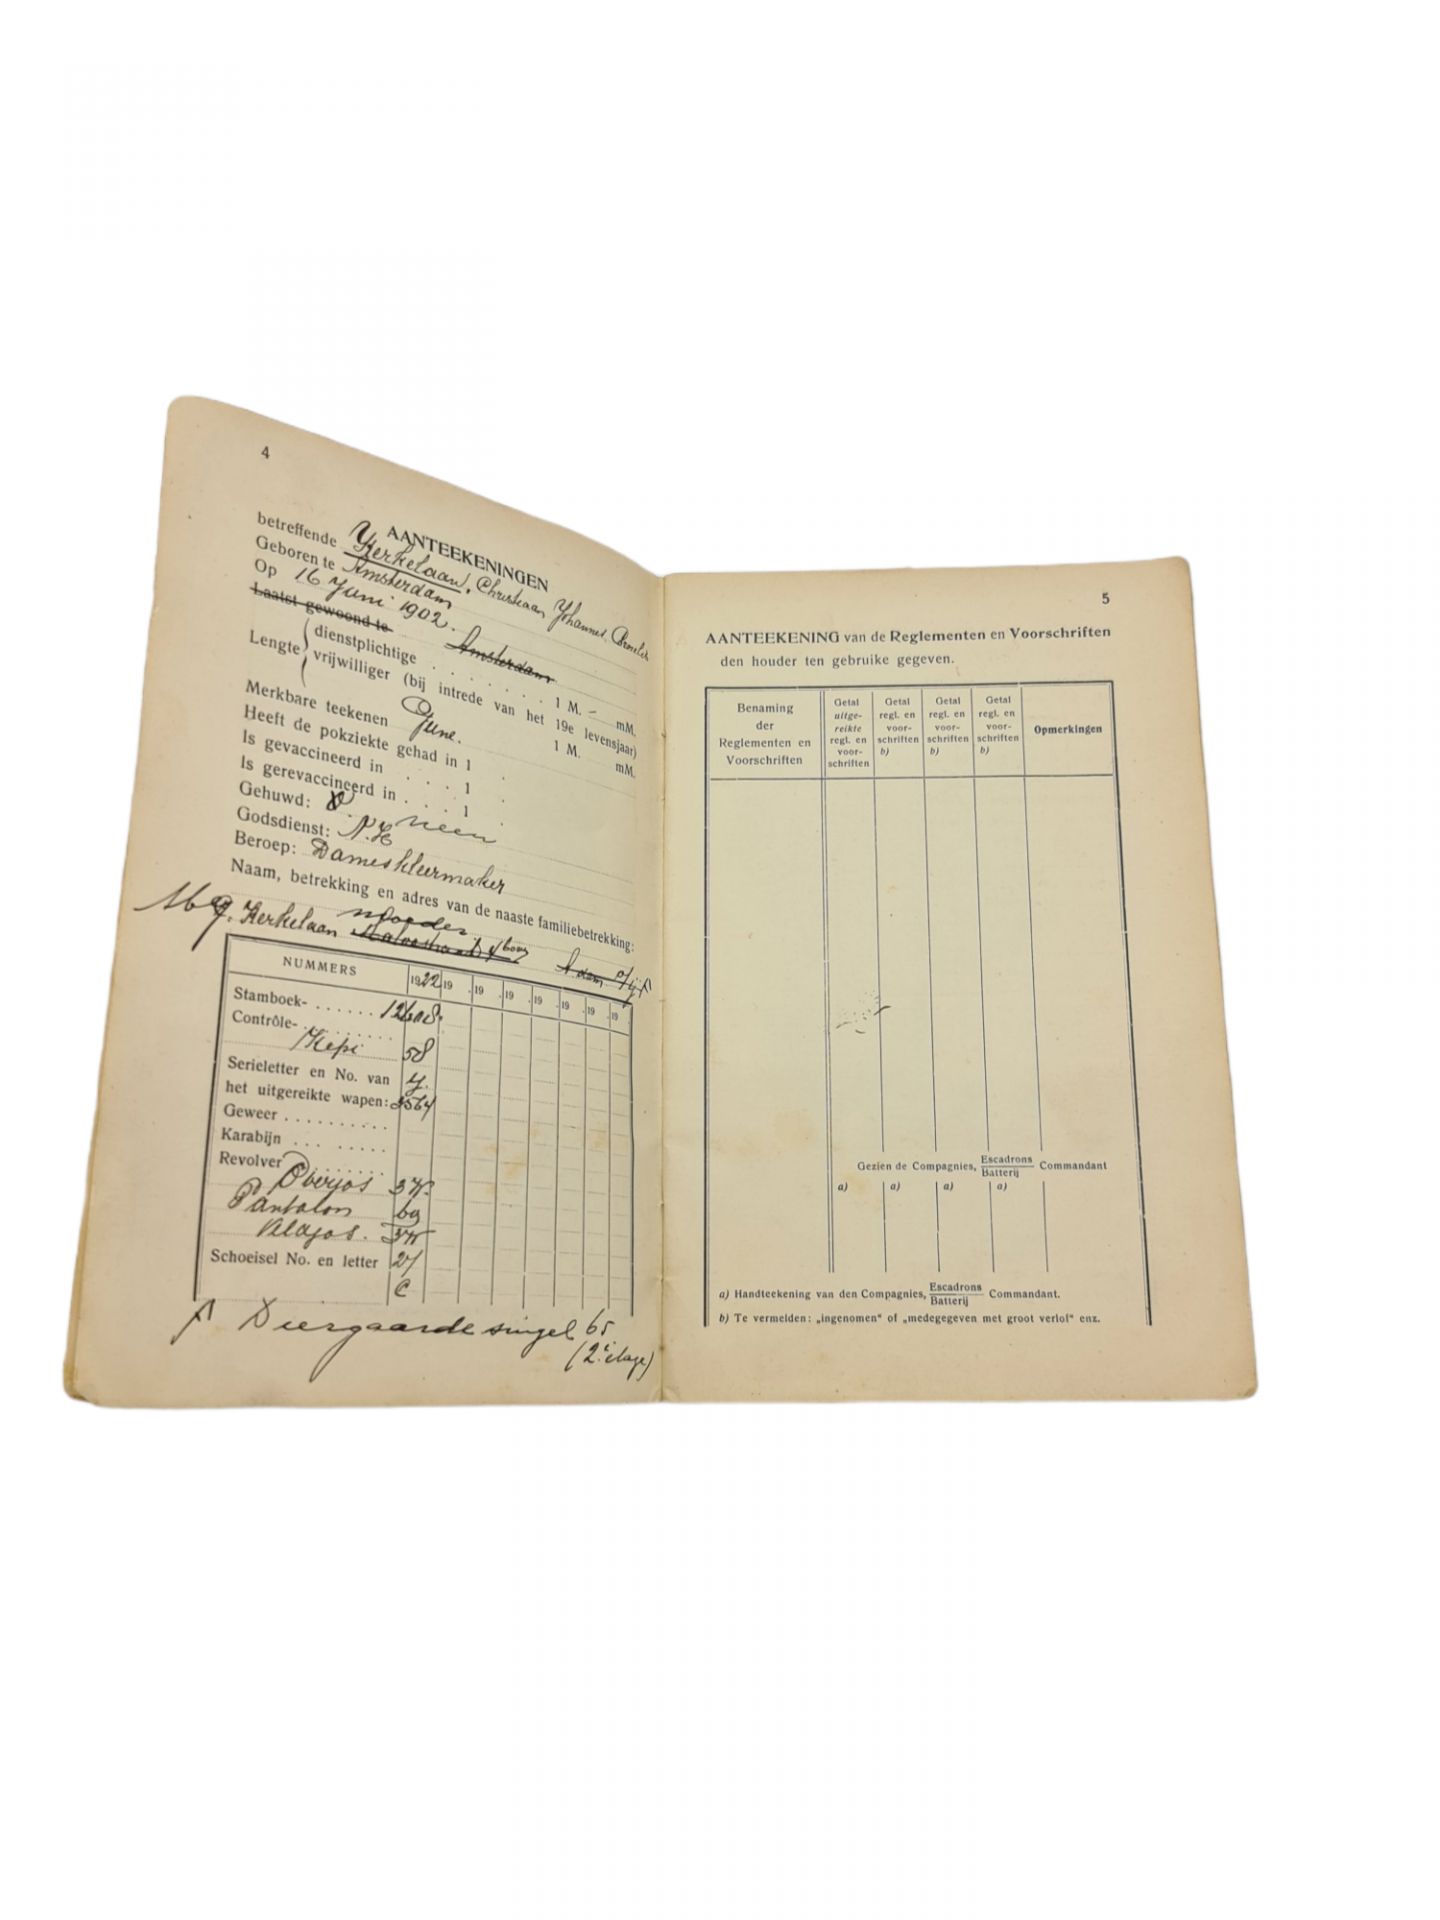 4
AANTEEKENINGEN
betreffende Kerkelaan, Christiaan Johannes
Geboren te Amsterdam
Op 16 Juni 1902.
Laatst gewoond te Amsterdam
Lengte dienstplichtige . . . . . . . 1 M. – mM.
vrijwilliger (bij intrede van het 19e levensjaar)
1 M. mM.
Merkbare teekenen
Heeft de pokziekte gehad in 1
Is gevaccineerd in . . . . 1
Is gerevaccineerd in . . . . 1
Gehuwd: neen
Godsdienst: N.H.
Beroep: Dameskleermaker
Naam, betrekking en adres van de naaste familiebetrekking:
moeder
Kerkelaan
NUMMERS 1922 19 19 19 19 19 19 19
Stamboek- . . . . . .
Contrôle- . . . . . . . . .
Kepi 58
Serieletter en No. van
het uitgereikte wapen:
Geweer . . . . . . . . . .
Karabijn . . . . . . . .
Revolver . . . . . . .
Overjas
Pantalon
Veldjas.
Schoeisel No. en letter 27
C
Diergaardesingel 65
(2e etage)
5
AANTEEKENING van de Reglementen en Voorschriften
den houder ten gebruike gegeven.
Benaming der Reglementen en Voorschriften
Getal uitgereikte regl. en voorschriften
Getal regl. en voorschriften b)
Getal regl. en voorschriften b)
Getal regl. en voorschriften b)
Opmerkingen
Gezien de Compagnies, Escadrons Batterij Commandant
a) a) a) a)
a) Handteekening van den Compagnies, Escadrons Batterij Commandant.
b) Te vermelden: „ingenomen“ of „medegegeven met groot verlof“ enz.